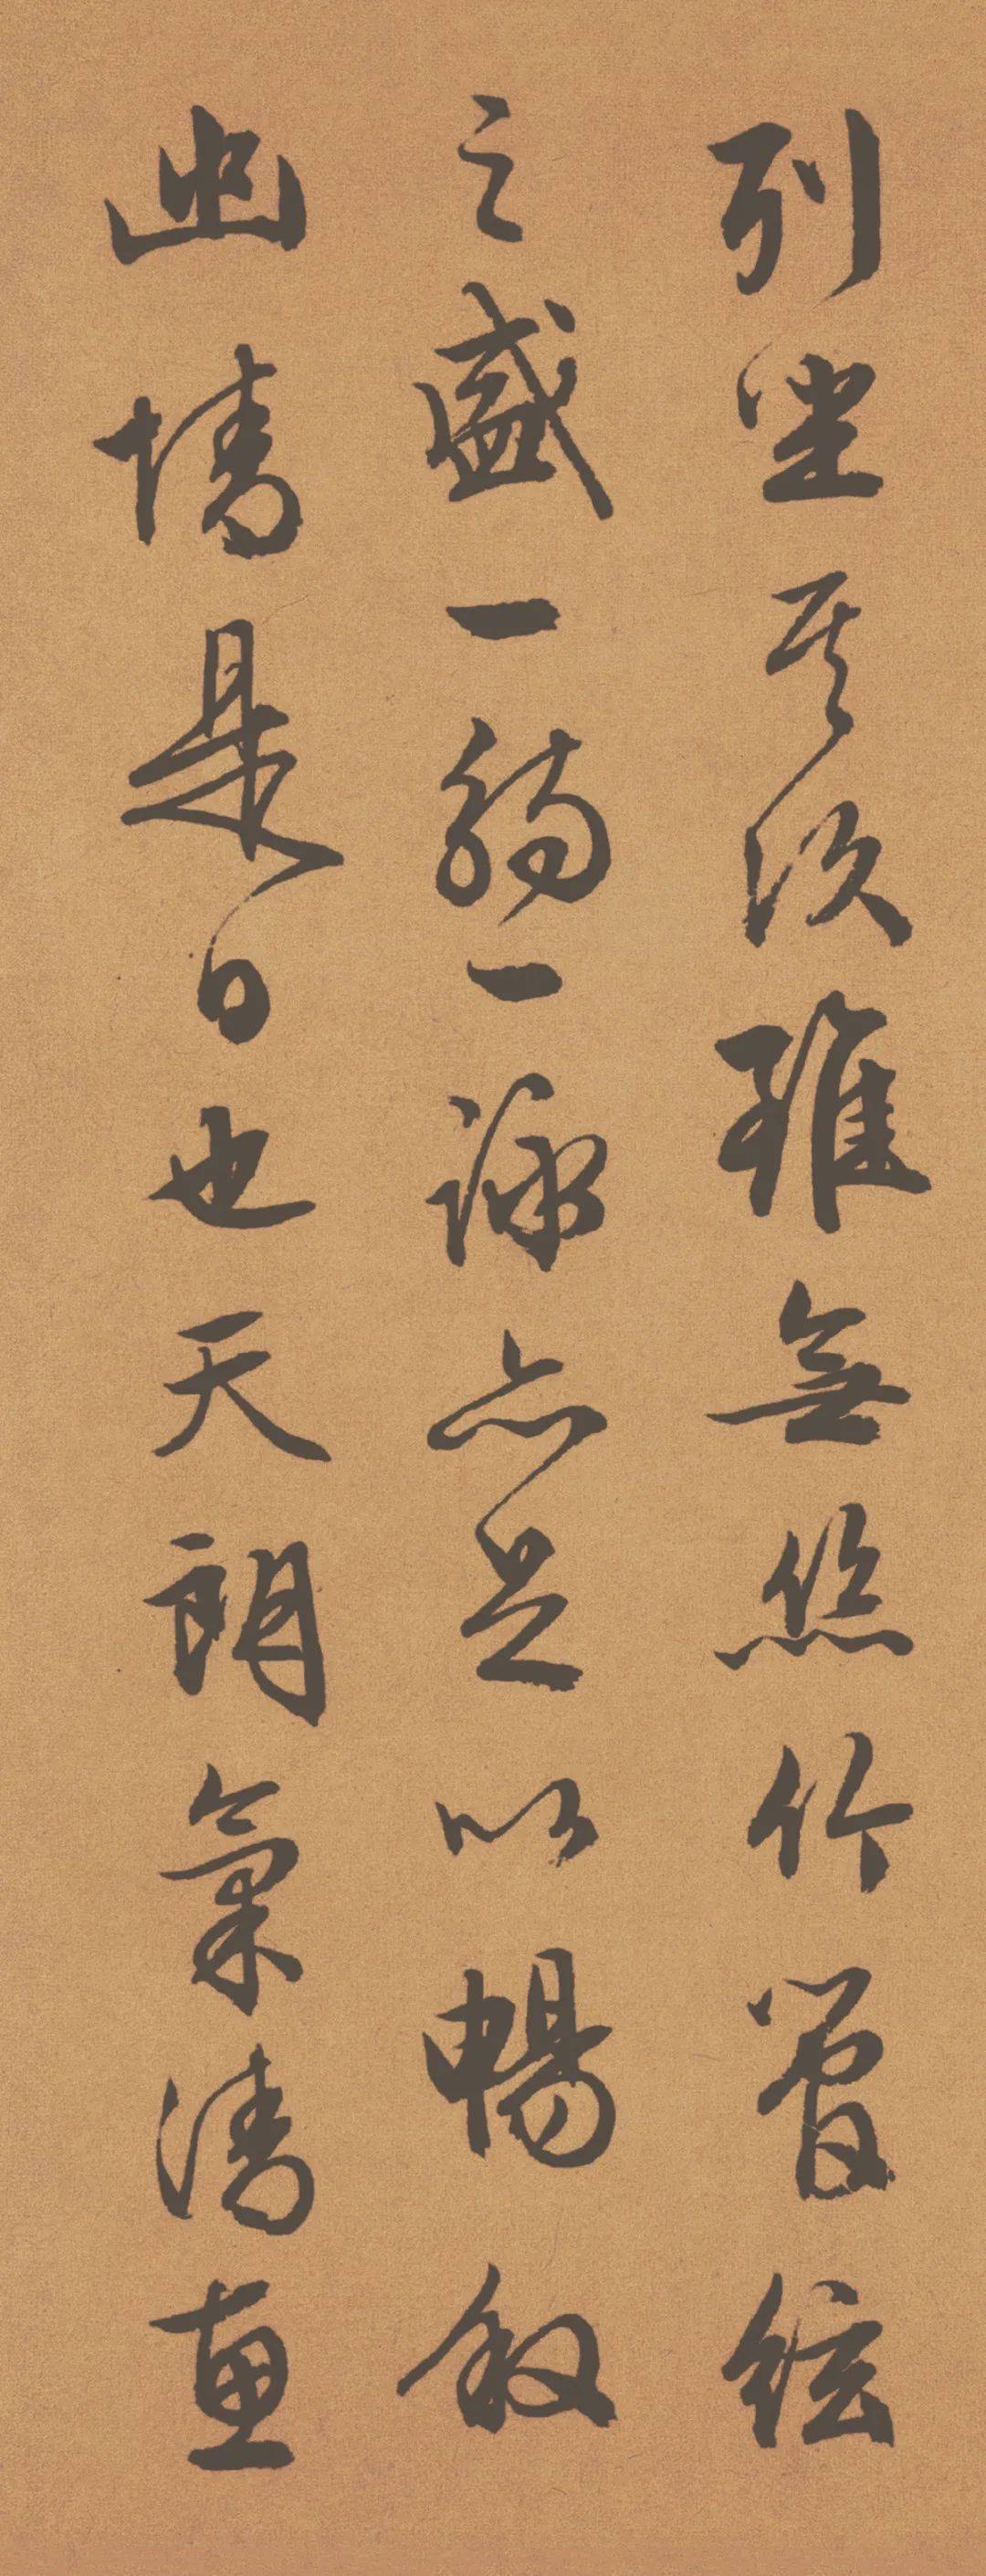 列坐其次雖無絲竹管絃
之盛一觴一詠亦足以暢叙
幽情是日也天朗氣清惠